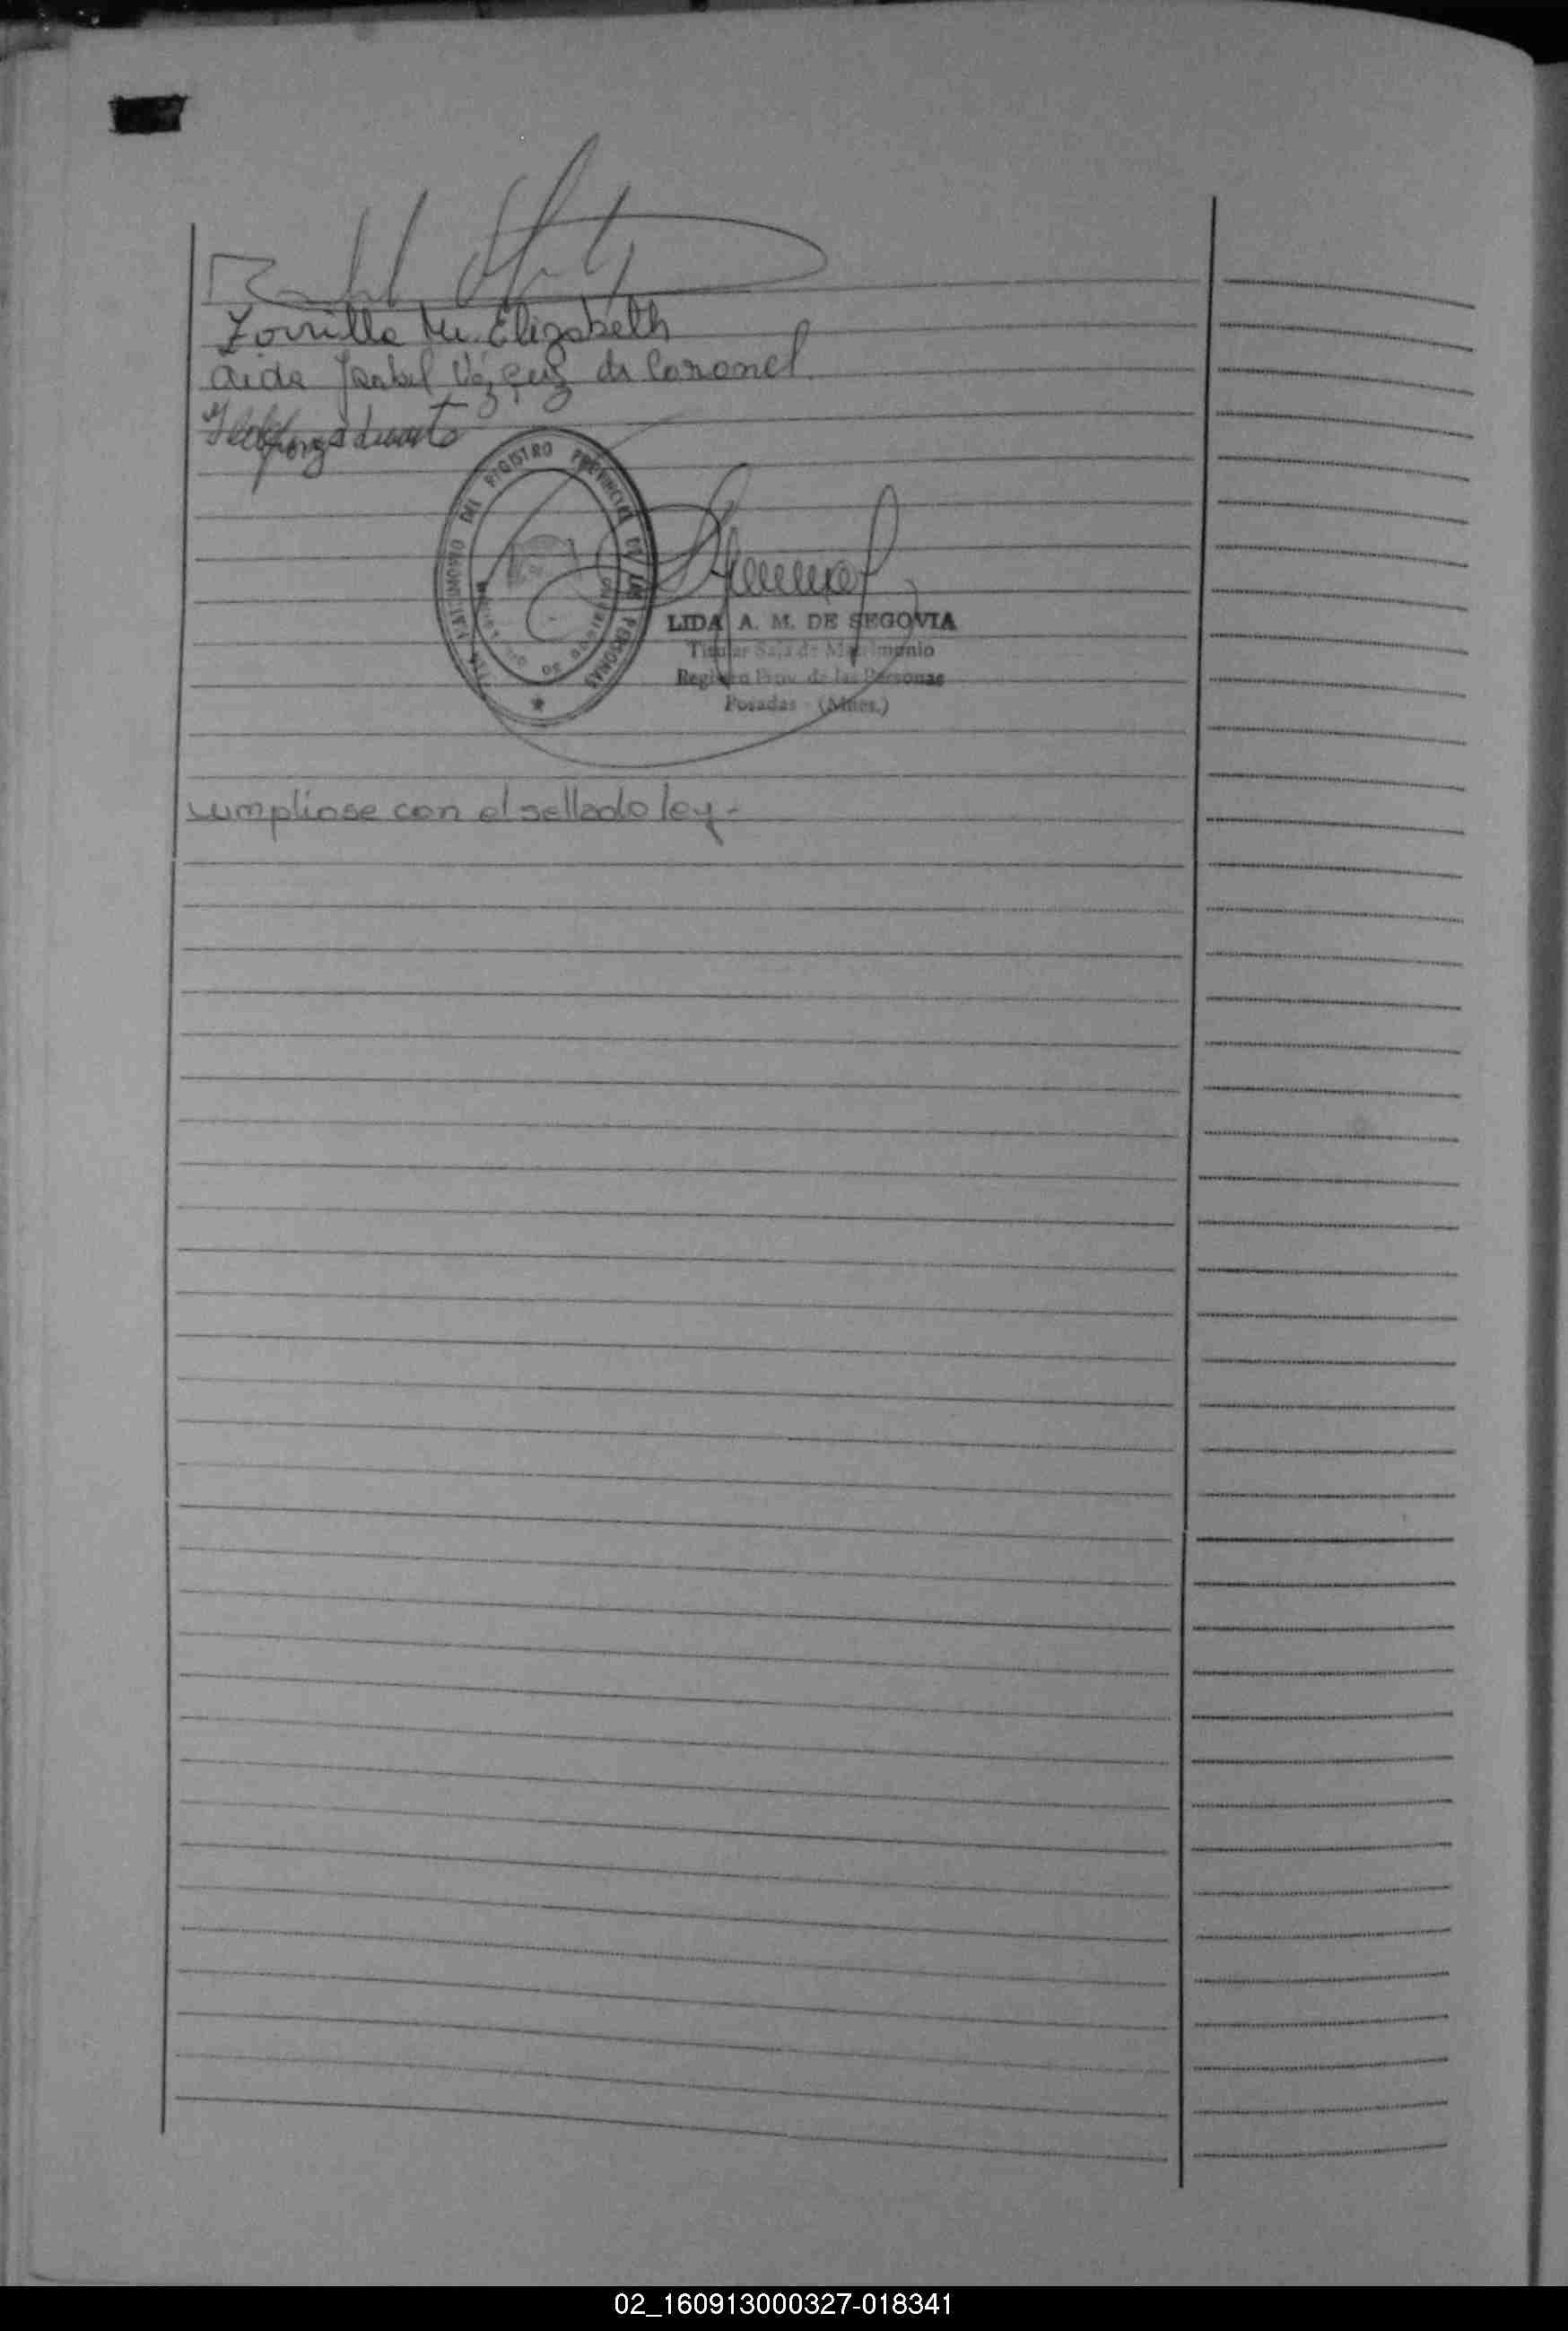 Zorrilla M. Elizabeth
Aida Isabel Vázquez de Coronel
Ildefonza duarte
DEL REGISTRO PROVINCIAL DE LAS PERSONAS
LIDA A. M. DE SEGOVIA
Titular Sala de Matrimonio
Registro Prov. de las Personas
Posadas - (Mnes.)
cumpliose con el sellado ley-
02_160913000327-018341